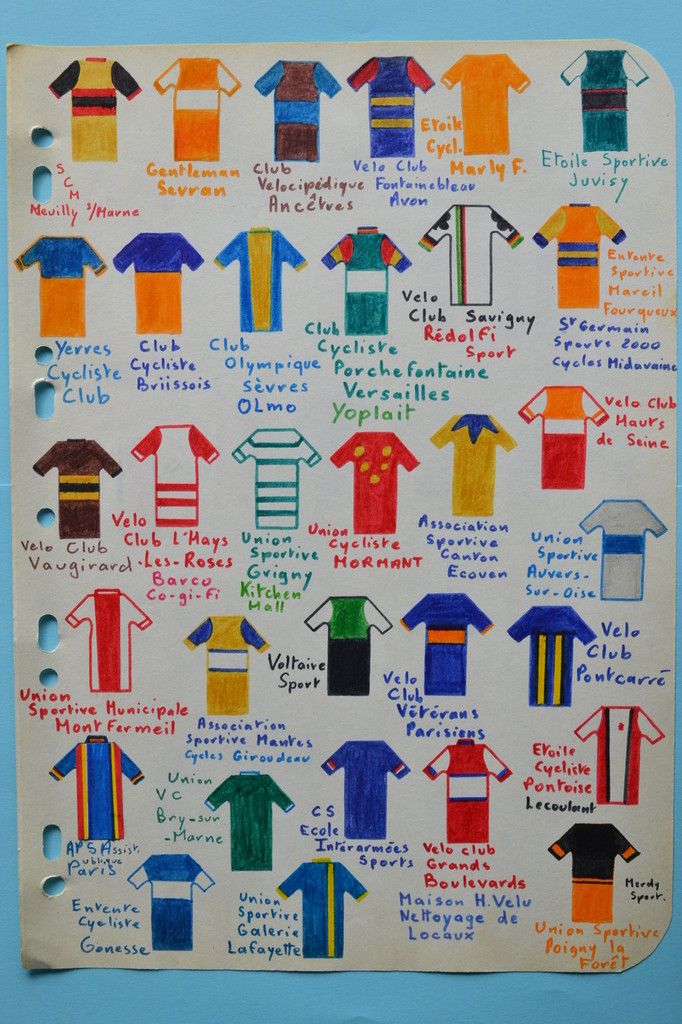 S
C
M
Neuilly s/Marne
Gentleman
Sevran
Club
Velocipédique
Ancêtres
Velo Club
Fontainebleau
Avon
Etoile
Cycl.
Marly F.
Etoile Sportive
Juvisy
Yerres
Cycliste
Club
Club
Cycliste
Briissois
Club
Olympique
Sèvres
OLmo
Club
Cycliste
Porchefontaine
Versailles
Yoplait
Velo
Club Savigny
Rédolfi
Sport
Entente
Sportive
Mareil
Fourqueux
St Germain
Sports 2000
Cycles Midavaine
Velo Club
Vaugirard
Velo
Club L'Hays
-Les-Roses
Barco
Co-gi-Fi
Union
Sportive
Grigny
Kitchen
Hall
Union
Cycliste
MORMANT
Association
Sportive
Canton
Ecouen
Velo Club
Hauts
de Seine
Union
Sportive
Auvers-
Sur-Oise
Union
Sportive Municipale
Montfermeil
Association
Sportive Mantes
Cycles Giroudeau
Voltaire
Sport
Velo
Club
Vétérans
Parisiens
Velo
Club
Pontcarré
APS Assist.
ublique
Paris
Union
VC
Bry-sur
-Marne
CS
Ecole
Interarmées
Sports
Velo club
Grands
Boulevards
Maison H.Velu
Nettoyage de
Locaux
Etoile
Cycliste
Pontoise
Lecoulant
Entente
Cycliste
Gonesse
Union
Sportive
Galerie
Lafayette
Merdy
Sport.
Union Sportive
Poigny la
Forêt